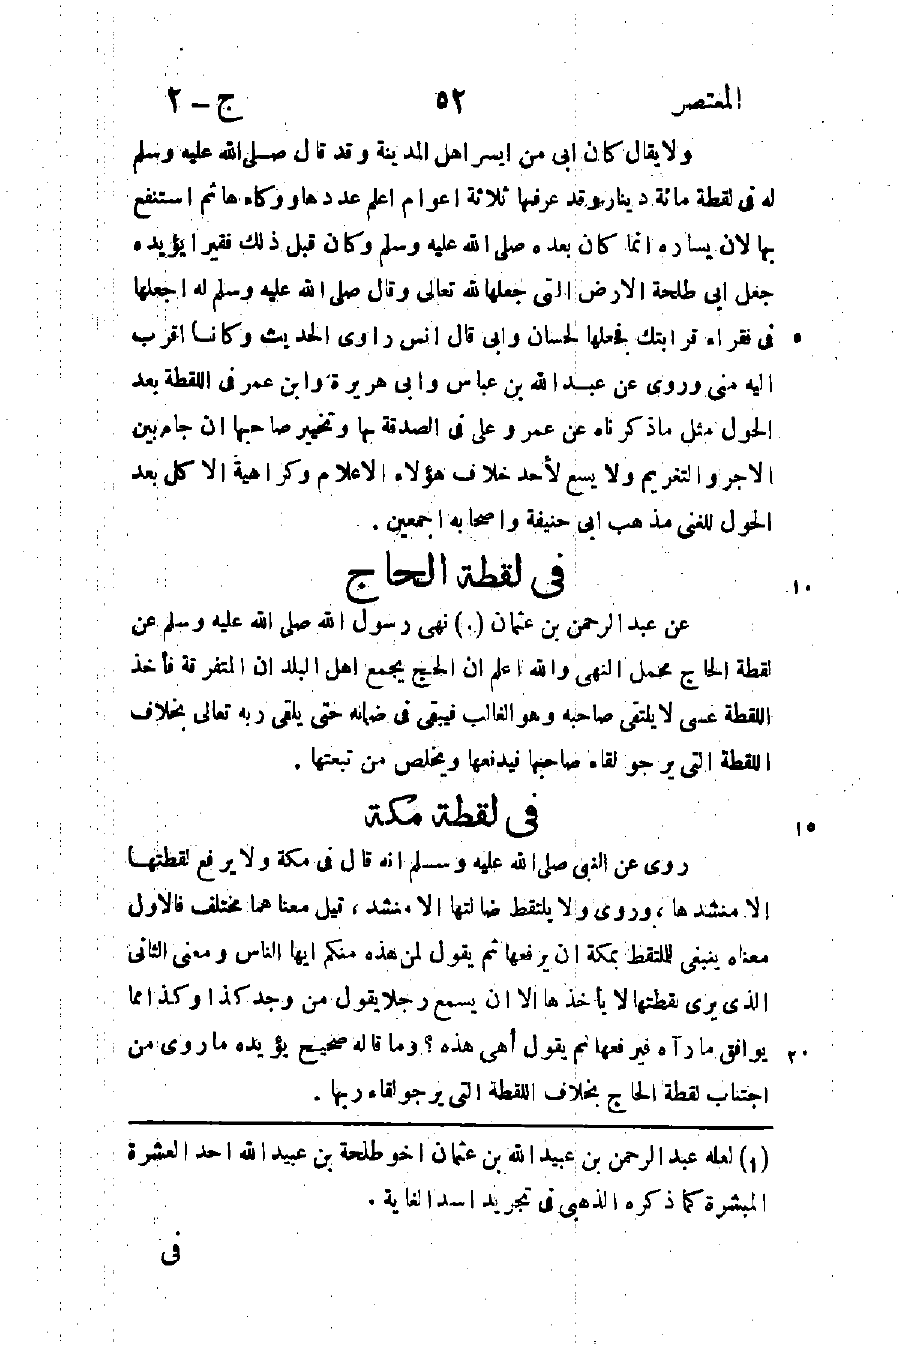 المعتصر ٥٢ ج - ٢
ولا يقال كان ابى من ايسر اهل المدينة وقد قال صلى الله عليه وسلم
له فى لقطة مائة دينار وقد عرفها ثلاثة اعوام اعلم عددها ووكاءها ثم استنفع
بها لان يساره انما كان بعده صلى الله عليه وسلم وكان قبل ذلك فقيرا يؤيده
جعل ابى طلحة الارض التى جعلها لله تعالى وقال صلى الله عليه وسلم له اجعلها
فى فقراء قرابتك فجعلها لحسان وابى قال انس راوى الحديث وكانا اقرب ٥
اليه منى وروى عن عبد الله بن عباس وابى هريرة وابن عمر فى اللقطة بعد
الحول مثل ماذكرناه عن عمر وعلى فى الصدقة بها وتخيير صاحبها ان جاء بين
الاجر والتغريم ولا يسع لأحد خلاف هؤلاء الاعلام وكراهية الاكل بعد
الحول للغنى مذهب ابى حنيفة واصحابه اجمعين .
فى لقطة الحاج ١٠
عن عبد الرحمن بن عثمان (١) نهى رسول الله صلى الله عليه وسلم عن
لقطة الحاج محمل النهى والله اعلم ان الحج يجمع اهل البلدان المتفرقة فأخذ
اللقطة عسى لا يلتقى صاحبه وهو الغالب فيبقى فى ضمانه حتى يلقى ربه تعالى بخلاف
اللقطة التى يرجو لقاء صاحبها فيدفعها ويخلص من تبعتها .
فى لقطة مكة ١٥
روى عن النبى صلى الله عليه وسلم انه قال فى مكة ولا يرفع لقطتها
الا منشدها ، وروى ولا يلتقط ضالتها الا منشد ، قيل معناهما مختلف فالاول
معناه ينبغى للملتقط بمكة ان يرفعها ثم يقول لمن هذه منكم ايها الناس ومعنى الثانى
الذى يرى لقطتها لا يأخذها الا ان يسمع رجلا يقول من وجد كذا وكذا مما
يوافق ما رآه فيرفعها ثم يقول أهى هذه ؟ وما قاله صحيح يؤيده ما روى من ٢٠
اجتناب لقطة الحاج بخلاف اللقطة التى يرجو لقاء ربها .
(١) لعله عبد الرحمن بن عبيد الله بن عثمان اخو طلحة بن عبيد الله احد العشرة
المبشرة كما ذكره الذهبى فى تجريد اسد الغابة .
فى